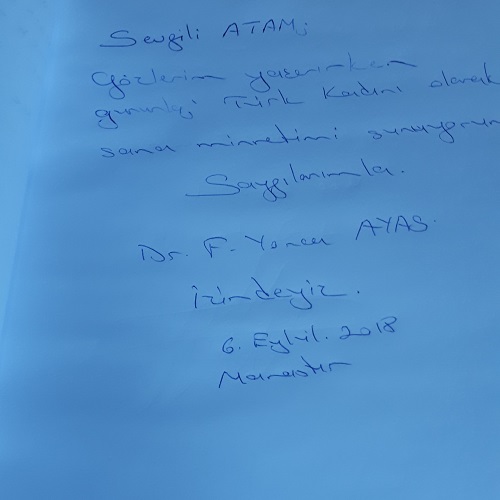 Sevgili ATAM;
Gözlerim yaşarırken
gururlu Türk Kadını olarak
sana minnetimi sunuyorum
Saygılarımla.
Dr. F. Yonca AYAS.
İzindeyiz.
6. Eylül. 2018
Manastır